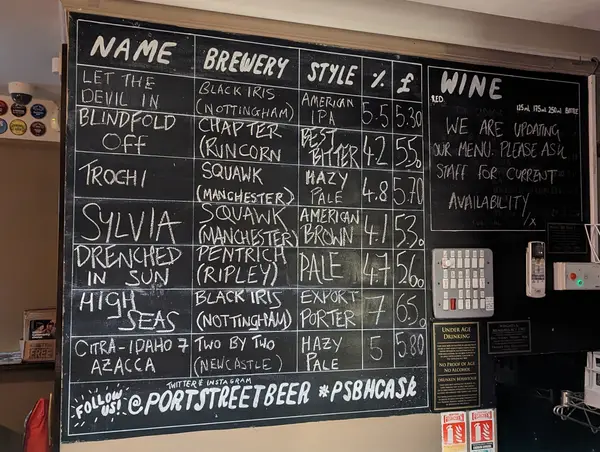 NAME BREWERY STYLE % £
LET THE DEVIL IN BLACK IRIS (NOTTINGHAM) AMERICAN IPA 5.5 5.30
BLINDFOLD OFF CHAPTER (RUNCORN BEST BITTER 4.2 5.50
TROCHI SQUAWK (MANCHESTER) HAZY PALE 4.8 5.70
SYLVIA SQUAWK (MANCHESTER) AMERICAN BROWN 4.1 5.30
DRENCHED IN SUN PENTRICH (RIPLEY) PALE 4.7 5.60
HIGH SEAS BLACK IRIS (NOTTINGHAM) EXPORT PORTER 7 6.50
CITRA-IDAHO 7 AZACCA TWO BY TWO (NEWCASTLE) HAZY PALE 5 5.80
FOLLOW US! TWITTER & INSTAGRAM
@PORTSTREETBEER #PSBHCASK
WINE
RED 125ML 175ML 250ML BOTTLE
WE ARE UPDATING
OUR MENU. PLEASE ASK
STAFF FOR CURRENT
AVAILABILITY
/X
UNDER AGE
DRINKING
NO PROOF OF AGE
NO ALCOHOL